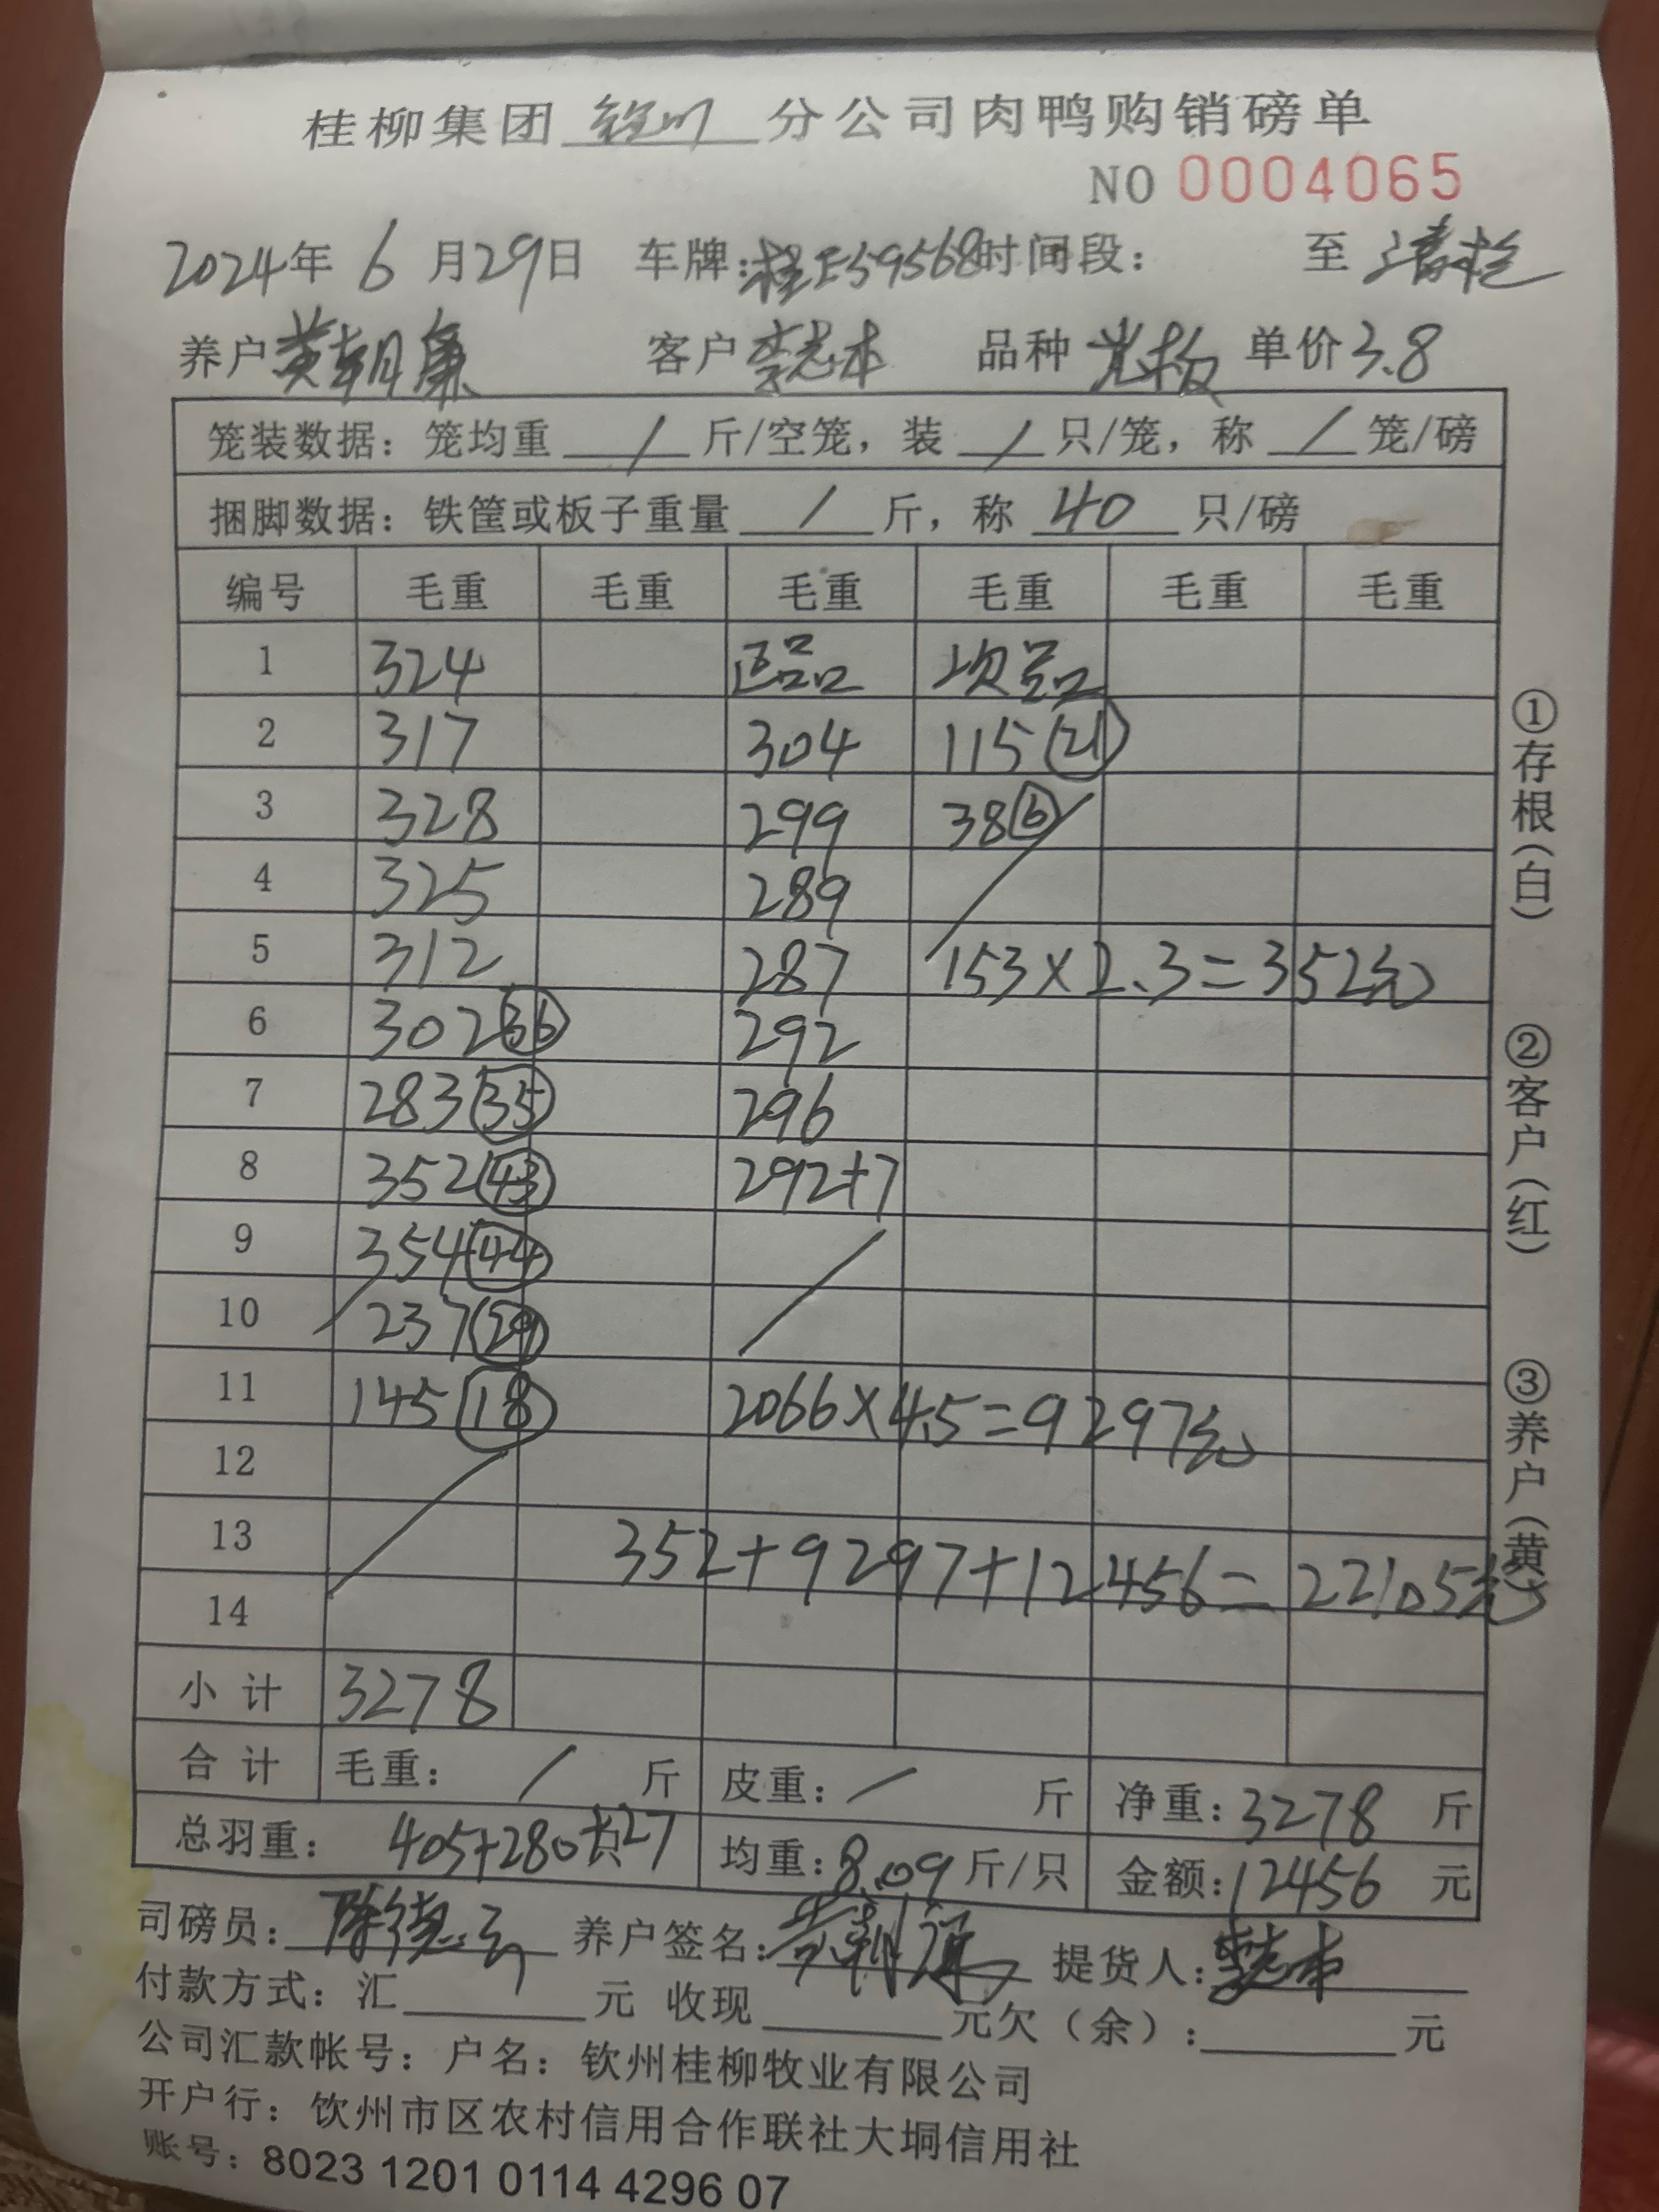 桂柳集团 钦州 分公司肉鸭购销磅单
NO 0004065
2024年 6 月29日 车牌:桂E59568时间段: 至
养户黄朝廉 客户李志本 品种 单价3.8
笼装数据: 笼均重 / 斤/空笼, 装 / 只/笼, 称 / 笼/磅
捆脚数据: 铁筐或板子重量 / 斤, 称 40 只/磅
编号 毛重 毛重 毛重 毛重 毛重 毛重
1 324 正品 次品
2 317 304 115(21)
3 328 299 38(6)
4 325 289
5 312 287 153×2.3=352元
6 302(36) 292
7 283(35) 296
8 352(43) 292+7
9 354(44)
10 237(29)
11 145(18) 2066×4.5=9297元
12
13 352+9297+12456=22105元
14
小计 3278
合计 毛重: / 斤 皮重: / 斤 净重:3278 斤
总羽重: 405+280 27 均重:8.09斤/只 金额:12456 元
司磅员: 陈德 养户签名: 黄朝廉 提货人:李志本
付款方式: 汇 元 收现 元欠(余): 元
公司汇款帐号: 户名: 钦州桂柳牧业有限公司
开户行: 钦州市区农村信用合作联社大垌信用社
账号: 8023 1201 0114 4296 07
①存根(白) ②客户(红) ③养户(黄)